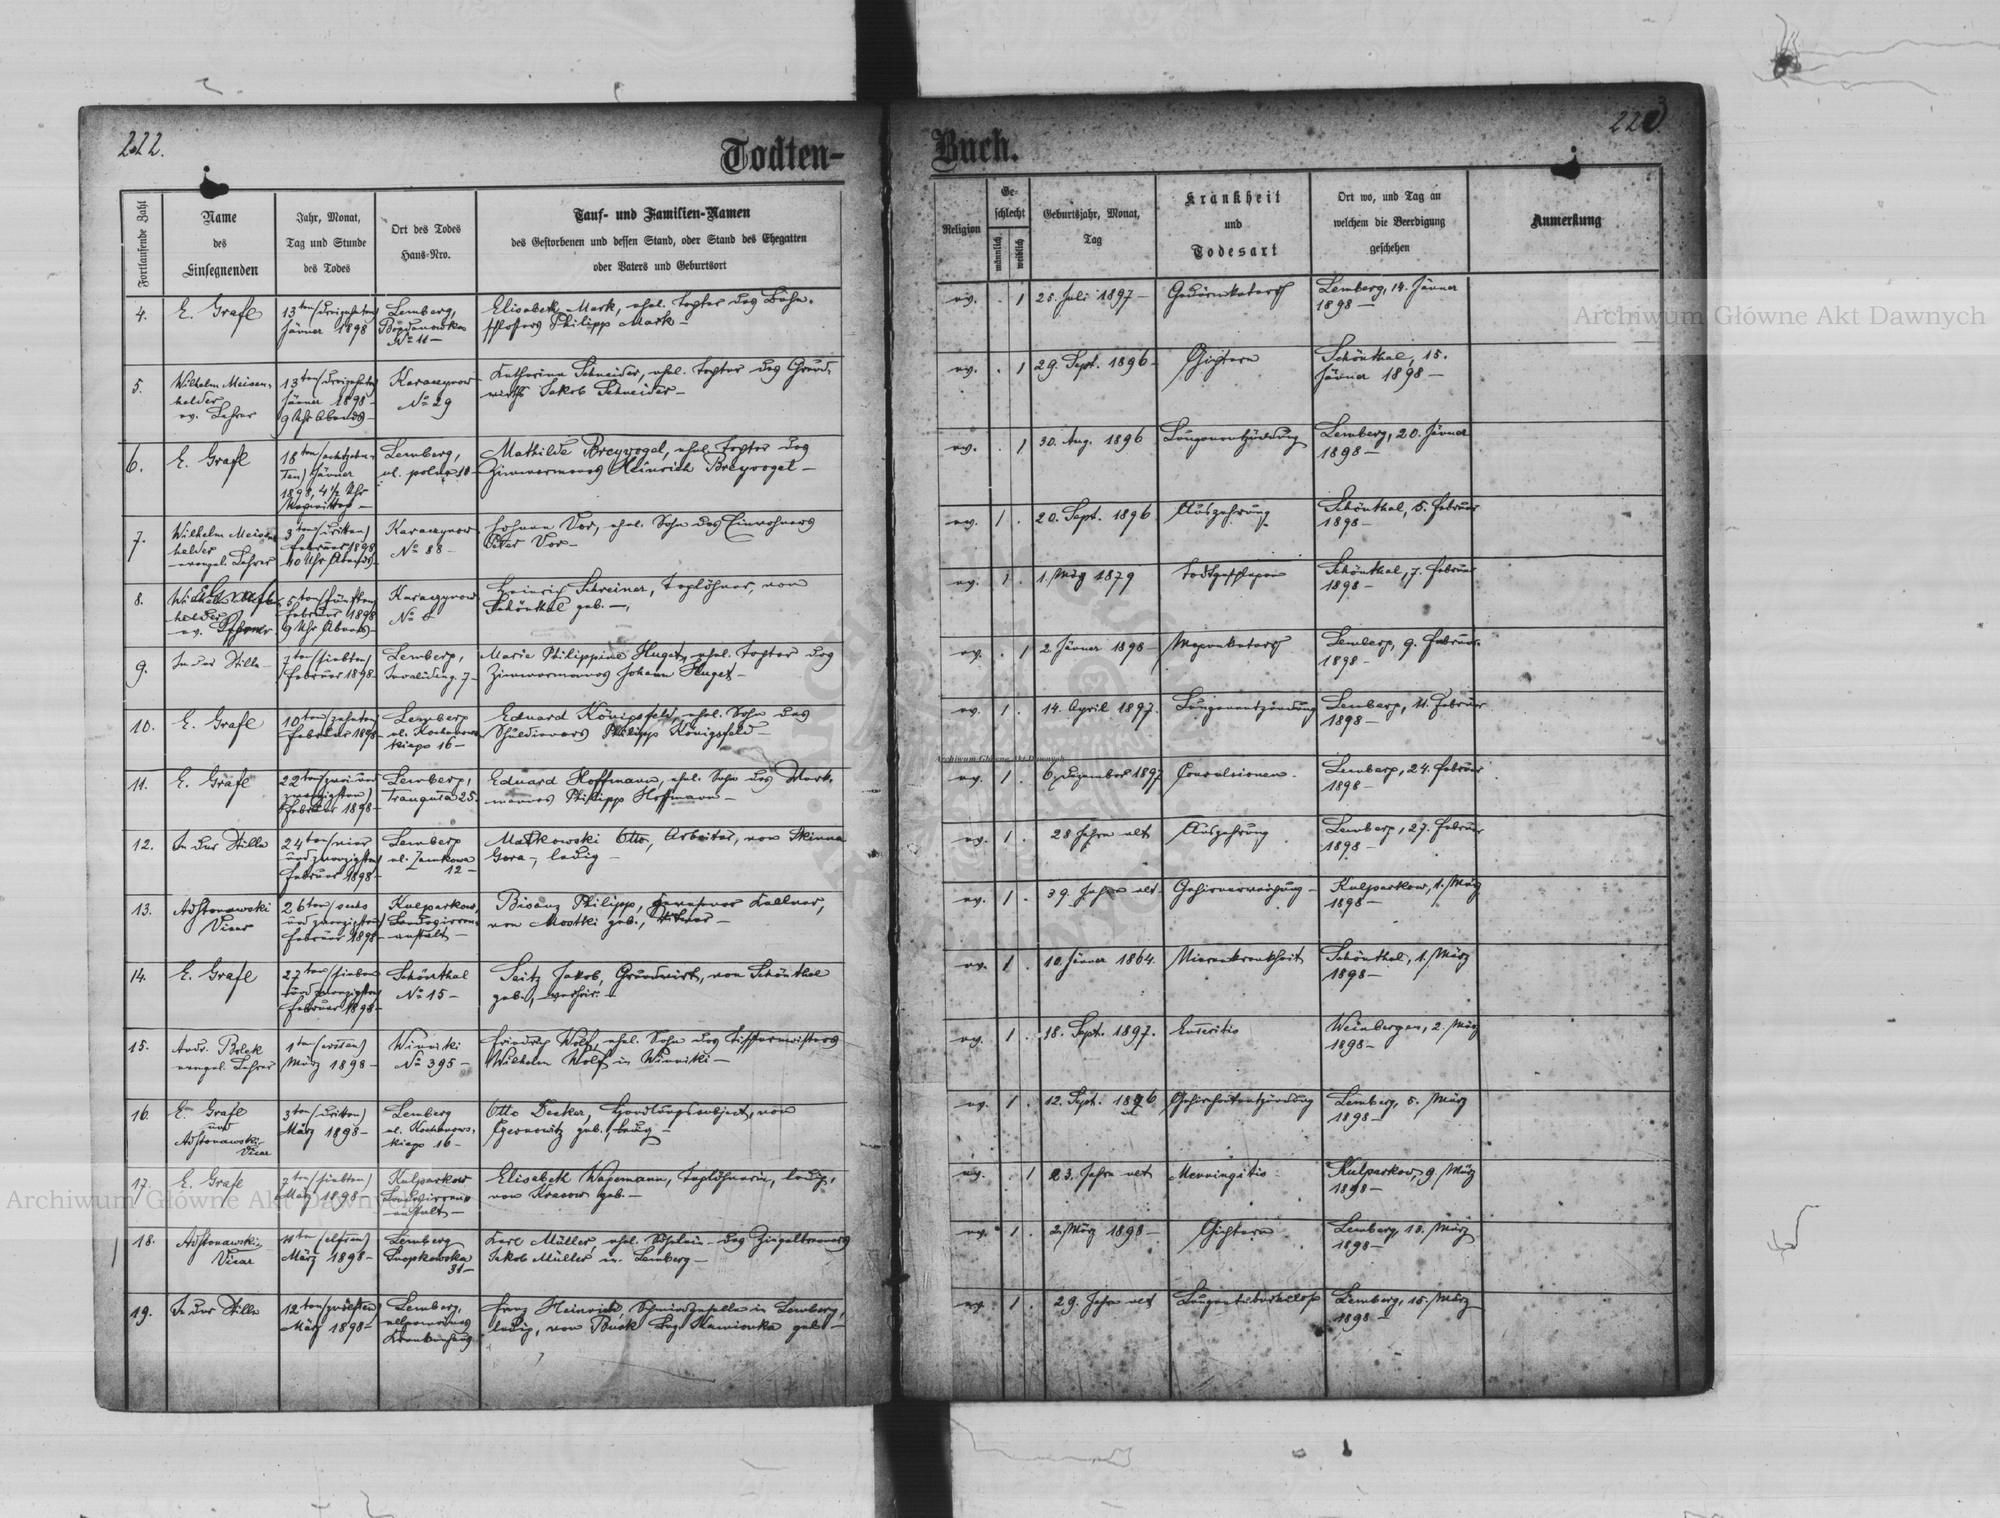 222.
Todten-
Fortlaufende Zahl
Name
des
Einsegnenden
Jahr, Monat,
Tag und Stunde
des Todes
Ort des Todes
Haus-Nro.
Tauf- und Familien-Namen
des Gestorbenen und dessen Stand, oder Stand des Ehegatten
oder Vaters und Geburtsort
4.
E. Grafl
13ten (dreizehnten)
Jänner 1898
Lemberg,
Bogdanowka
No 11 —
Elisabeth Mark, ehel. Tochter des
schlossers Philipp Mark —
5.
Wilhelm Meisen-
helder
ev. Lehrer
13ten (dreizehnten)
Jänner 1898
9 Uhr Abends —
Karaczynow
No 29
Katharina Schneider, ehel. Tochter des Grund-
wirths Jakob Schneider —
6.
E. Grafl
18ten (achtzehn-
ten) Jänner
1898, 4½ Uhr
Lemberg,
ul. polna 10 —
Mathilde Breyvogel, ehel. Tochter des
Zimmermanns Heinrich Breyvogel —
7.
Wilhelm Meisen
helder
evangel. Lehrer
3ten (dritten)
Februar 1898
10 Uhr Abends —
Karaczynow
No 88 —
Johann Vor, ehel. Sohn des Einwohners
Peter Vor —
8.
helder
ev.
5ten (fünften)
Februar 1898
9 Uhr Abends —
Karaczynow
No 8
Heinrich Schreiner, Taglöhner, von
Schönthal geb. —
9.
In der Stille —
7ten (siebten)
Februar 1898 —
Lemberg,
7 —
Marie Philippine Huget, ehel. Tochter des
Zimmermanns Johann Huget —
10.
E. Grafl
10ten (zehnten)
Februar 1898 —
Lemberg
ul. Kochanow-
skiego 16 —
Eduard Königsfeld, ehel. Sohn des
Schuldieners Philipp Königsfeld —
11.
E. Grafl
22ten (zwei und
zwanzigsten)
Februar 1898 —
Lemberg,
25.
Eduard Hoffmann, ehel. Sohn des Werk-
mannes Philipp Hoffmann —
12.
In der Stille
24ten (vier
und zwanzigsten)
Februar 1898 —
Lemberg
ul. Zamkowa
12 —
Matkowski Otto, Arbeiter, von
Gora —, ledig —
13.
Vicar
26ten (sechs
und zwanzigsten)
Februar 1898 —
Kulparkow,
Landesirren-
anstalt —
Bisanz Philipp, gewesener Kellner,
von Mostki geb.,
14.
E. Grafl
27ten (sieben
und zwanzigsten)
Februar 1898 —
Schönthal
No 15 —
Seitz Jakob, Grundwirt, von Schönthal
geb., verheir. —
15.
Andr. Bolek
evangel. Lehrer
1ten (ersten)
März 1898 —
Winniki
No 395 —
Friedrich Wolf, ehel. Sohn des Tischlermeisters
Wilhelm Wolf in Winniki —
16.
E. Grafl
und
Vicar
3ten (dritten)
März 1898 —
Lemberg
ul. Kochanow-
skiego 16 —
Otto Decker, Handlungssubject, von
Czernowitz geb., ledig —
17.
E. Grafl
7ten (siebten)
März 1898 —
Kulparkow
Landesirren-
anstalt —
Elisabeth Wagemann, Taglöhnerin, ledig,
von Krasow geb. —
18.
Vicar
11ten (elften)
März 1898 —
Lemberg
Snopkowska
31 —
Karl Müller, ehel. Söhnlein des
Jakob Müller in Lemberg —
19.
In der Stille
12ten (zwölften)
März 1898 —
Lemberg,
allgemeines
Krankenhaus
Franz Heinrich, Schmiedgeselle in Lemberg,
ledig, von Busk Bez. Kamionka geb. —
Buch.
Religion
Ge-
schlecht
männlich
weiblich
Geburtsjahr, Monat,
Tag
Krankheit
und
Todesart
Ort wo, und Tag an
welchem die Beerdigung
geschehen
Anmerkung
ev. . 1 25. Juli 1897 — Gedärmkatarrh Lemberg, 14. Jänner
1898 —
ev. . 1 29. Sept. 1896 — Gichtern Schönthal, 15.
Jänner 1898 —
ev. . 1 30. Aug. 1896 Lungenentzündung Lemberg, 20. Jänner
1898 —
ev. 1 . 20. Sept. 1896 Auszehrung Schönthal, 5. Februar
1898 —
ev. 1 . 1. März 1879 Todtgeschlagen Schönthal, 7. Februar
1898 —
ev. . 1 2. Jänner 1898 — Magenkatarrh Lemberg, 9. Februar
1898 —
ev. 1 . 14. April 1897. Lungenentzündung Lemberg, 11. Februar
1898 —
ev. 1 . 6. Dezember 1897 Convulsionen. Lemberg, 24. Februar
1898 —
ev. 1 . 28 Jahre alt Auszehrung Lemberg, 27. Februar
1898 —
ev. 1 . 39. Jahre alt Gehirnerweichung — Kulparkow, 1. März
1898 —
ev. 1 . 10. Jänner 1864. Nierenkrankheit Schönthal, 1. März
1898 —
ev. 1 . 18. Sept. 1897. Enteritis Weinbergen, 2. März
1898 —
ev. 1 . 12. Sept. Gehirnhautentzündung Lemberg, 5. März
1898 —
ev. . 1 23. Jahre alt Menningitis Kulparkow, 9. März
1898 —
ev. 1 . 2. März 1898 — Gichtern Lemberg, 13. März
1898 —
ev. 1 . 29. Jahre alt Lungentuberkulose Lemberg, 15. März
1898 —
Archiwum Główne Akt Dawnych
Archiwum Główne Akt Dawnych
Archiwum Główne Akt Dawnych